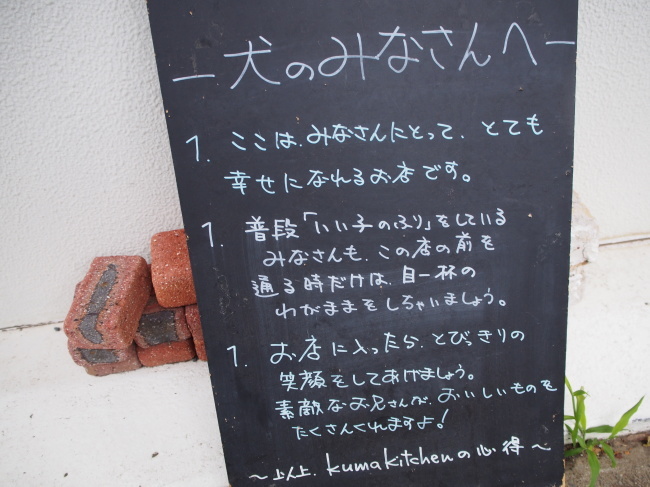 －犬のみなさんへ－
1. ここは、みなさんにとって、とても
幸せになれるお店です。
1. 普段「いい子のふり」をしている
みなさんも、この店の前を
通る時だけは、目一杯の
わがままをしちゃいましょう。
1. お店に入ったら、とびっきりの
笑顔をしてあげましょう。
素敵なお兄さんが、おいしいものを
たくさんくれますよ!
～以上、kumakitchenの心得～